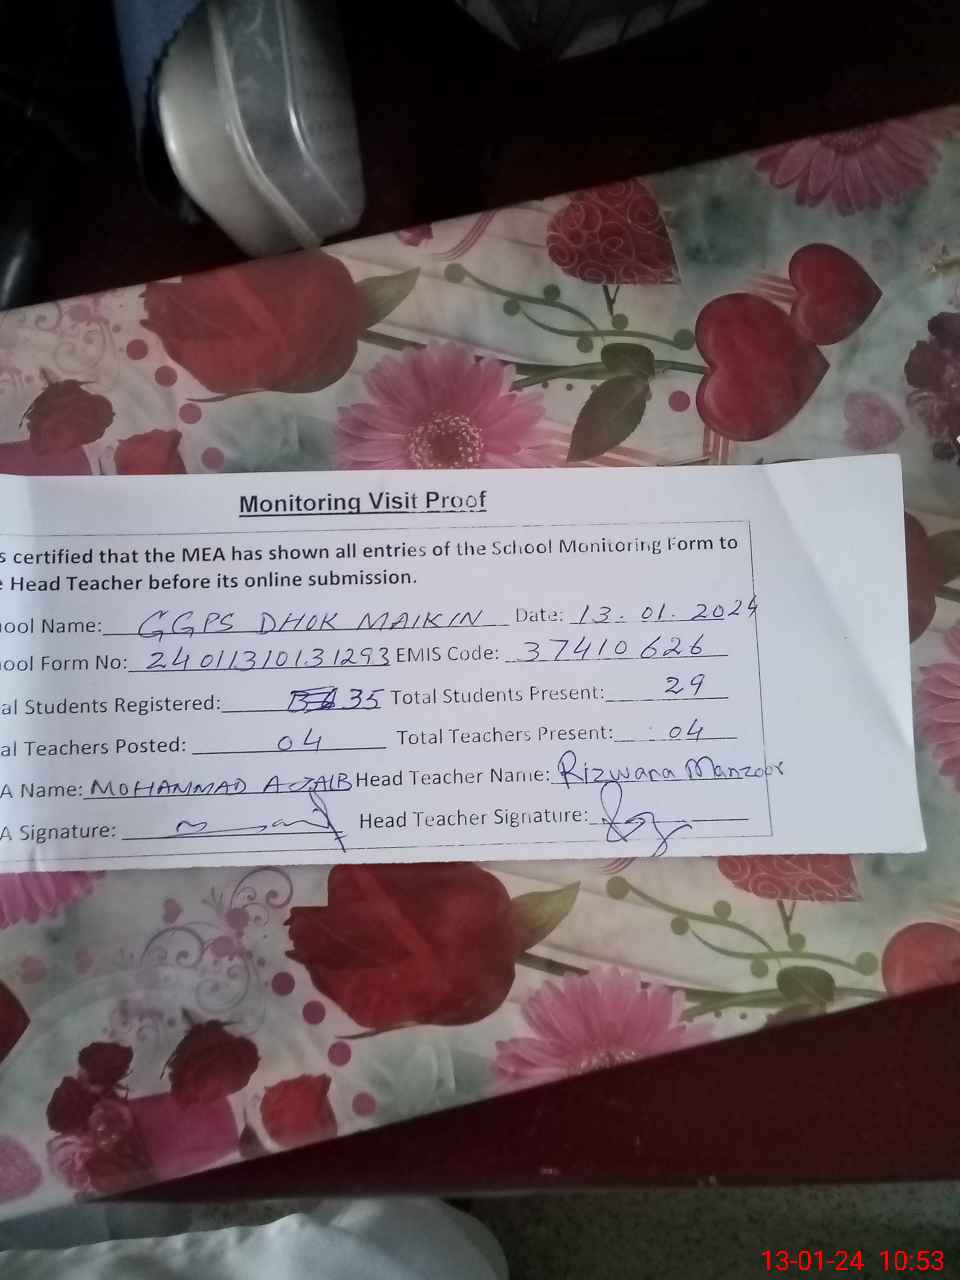 Monitoring Visit Proof
s certified that the MEA has shown all entries of the School Monitoring Form to
e Head Teacher before its online submission.
ool Name: GGPS DHOK MAIKIN Date: 13.01.2024
ool Form No: 24011310131293 EMIS Code: 37410626
al Students Registered: 35 Total Students Present: 29
al Teachers Posted: 04 Total Teachers Present: 04
A Name: MOHAMMAD AZAIB Head Teacher Name: Rizwana Manzoor
A Signature: Head Teacher Signature:
13-01-24 10:53